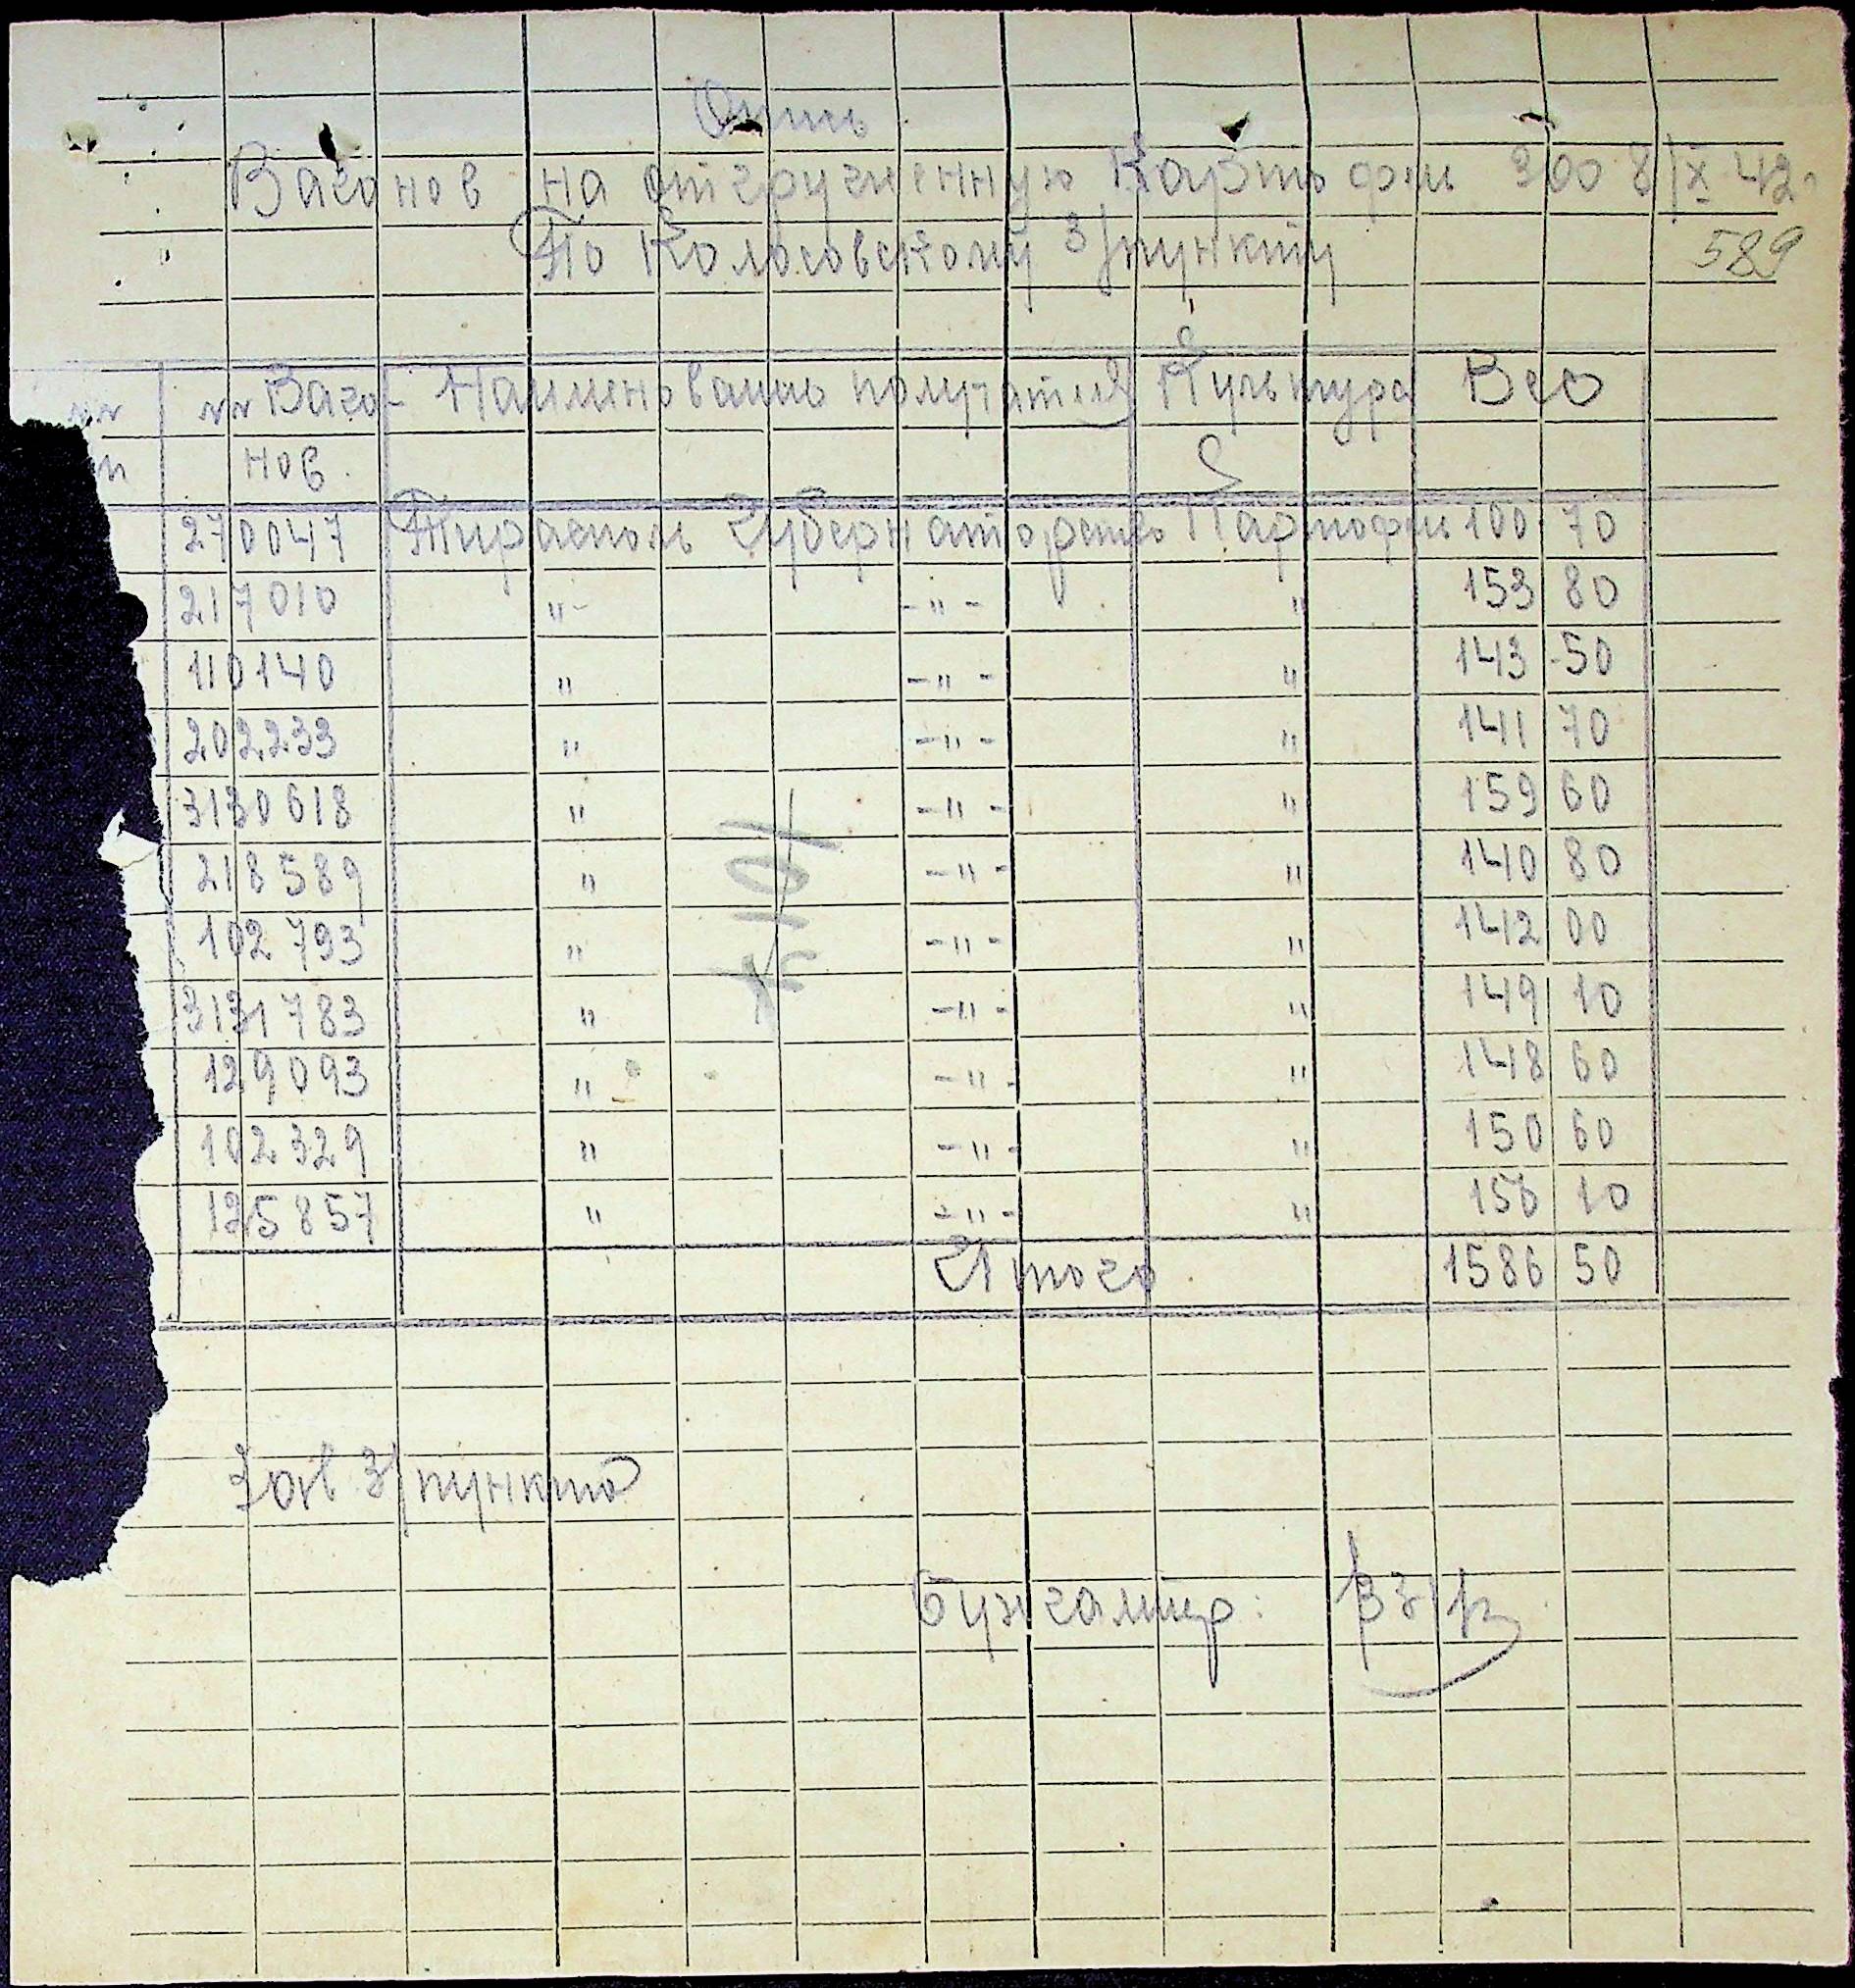 Опись
Вагонов на отгруженную Картофель 8/IX-42.
По Колосовскому З/пункту
589
№№ №№ Ваго- Наименовань получателя Культура Вес
нов.
270047 Тирасполь Губернаторство Картофель 100 70
217010 "- -"- " 153 80
110140 " -"- " 143 50
202233 " -"- " 141 70
3130618 " -"- " 159 60
218589 " -"- " 140 80
102793 " -"- " 142 00
3131783 " -"- " 149 10
129093 " -"- " 148 60
102329 " -"- " 150 60
125857 " -"- " 156 10
Итого 1586 50
Зав. З/пункта
Бухгалтер: